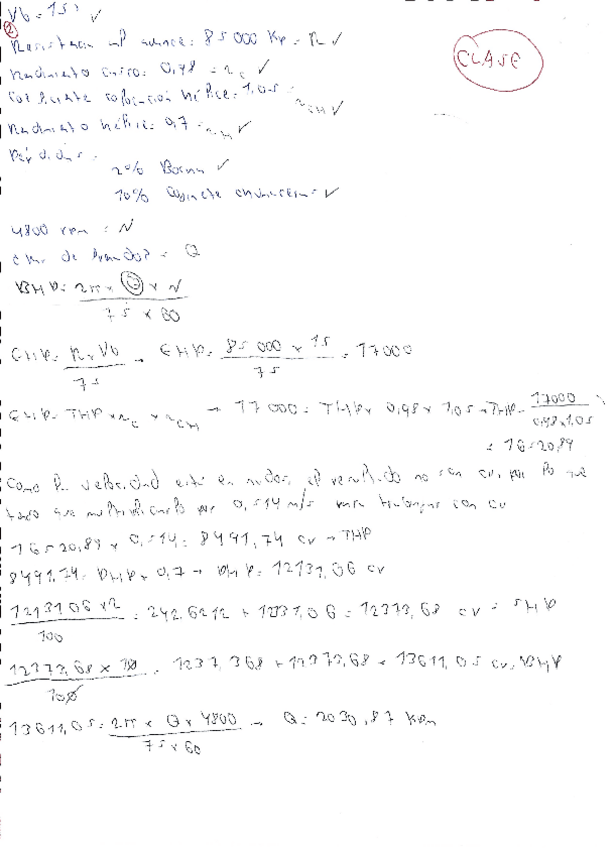 Vb = 15' ✓
②
CLASE
Resistencia al avance = 85000 Kp = R ✓
Rendimiento casco: 0,98 = nc ✓
Coeficiente rotación hélice = 1,05 = nCH ✓
Rendimiento hélice = 0,7 = nH ✓
Pérdidas:
2% Bocina ✓
10% Cojinete chumacera = ✓
4800 rpm = N
= Q
BHP = 2π × Q × N / 75 × 60
EHP = R × Vb / 75 → EHP = 85000 × 15 / 75 = 17000
EHP = THP × nc × nCH → 17000 = THP × 0,98 × 1,05 → THP = 17000 / 0,98 × 1,05
= 16520,89
Como la velocidad está en nudos, el resultado no son cv, por lo que
tengo que multiplicarlo por 0,514 m/s para trabajar con cv
16520,89 × 0,514 = 8491,74 cv → THP
8491,74 = DHP × 0,7 → DHP = 12131,06 cv
12131,06 × 2 / 100 = 242,6212 + 12131,06 = 12373,68 cv = SHP
12373,68 × 10 / 100 = 1237,368 + 12373,68 = 13611,05 cv, BHP
13611,05 = 2π × Q × 4800 / 75 × 60 → Q = 2030,87 Kpm